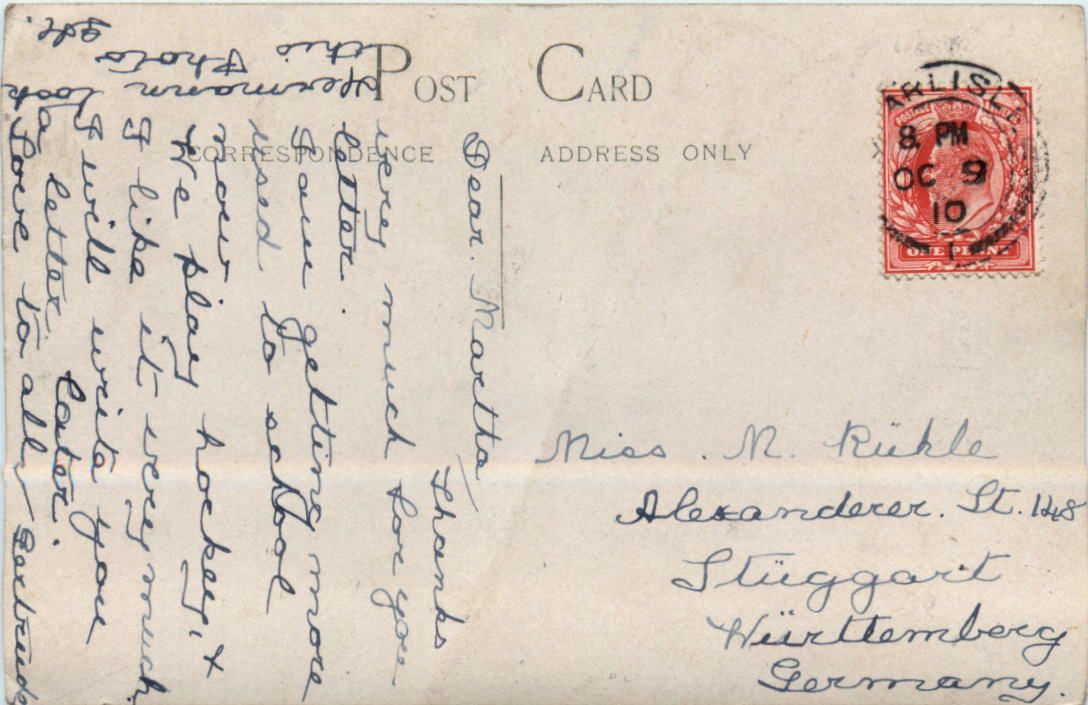 POST CARD
CORRESPONDENCE
ADDRESS ONLY
CARLISLE
8 PM
OC 9
10
POSTAGE
ONE PENNY
Dear. Martha
Thanks
very much for your
letter.
I am getting more
used to school
now
We play hockey, &
I like it very much.
I will write you
a letter later.
Love to all
Gertrude
Hermann took
this Photo
Miss. M. Rühle
Alexanderer. St. 148
Stüggart
Württemberg
Germany.